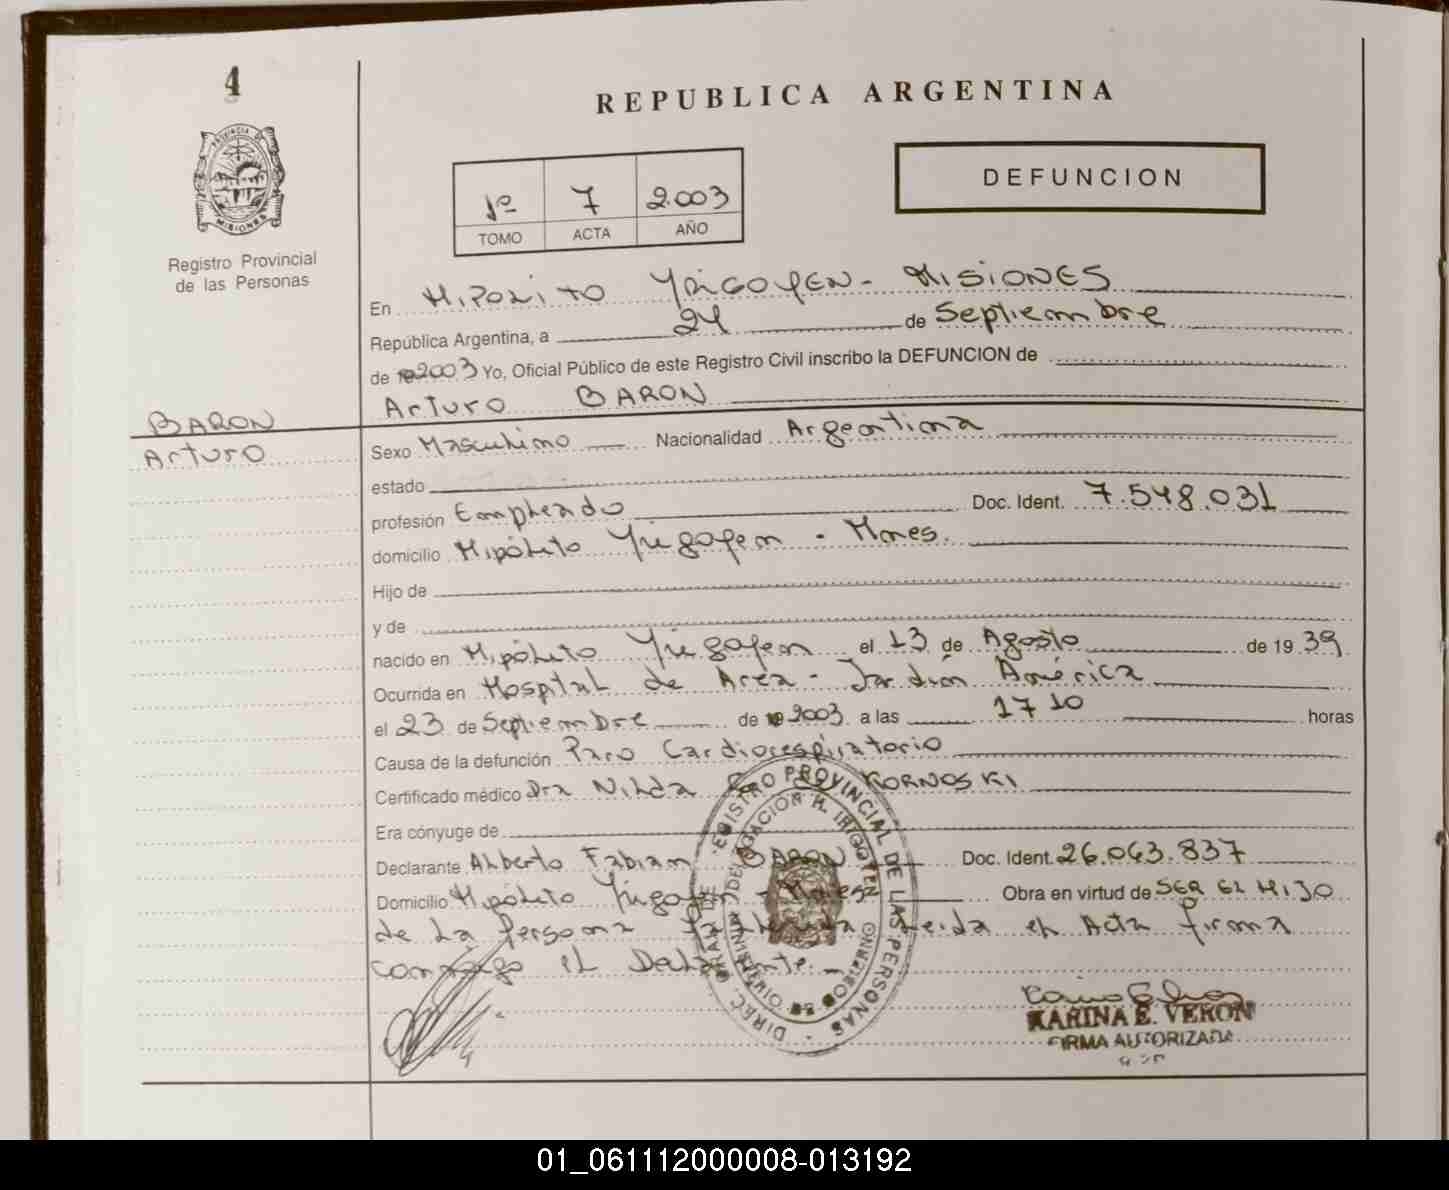 4
PROVINCIA DE
MISIONES
Registro Provincial
de las Personas
REPUBLICA ARGENTINA
1º 7 2.003
TOMO ACTA AÑO
DEFUNCION
En Hipolito Yrigoyen - Misiones
República Argentina, a 24 de Septiembre
de 2003 Yo, Oficial Público de este Registro Civil inscribo la DEFUNCION de
Arturo BARON
BARON
Arturo
Sexo Masculino Nacionalidad Argentina
estado
profesión Empleado Doc. Ident. 7.548.031
domicilio Hipólito Yrigoyen - Mnes.
Hijo de
y de
nacido en Hipólito Yrigoyen el 13 de Agosto de 19 39
Ocurrida en Hospital de Area - Jardín América
el 23 de Septiembre de 2003 a las 17 10 horas
Causa de la defunción Paro Cardiorespiratorio
Certificado médico Dra Nilda KORNOSKI
Era cónyuge de
Declarante Alberto Fabian BARON Doc. Ident. 26.063.837
Domicilio Hipólito Yrigoyen - Mnes Obra en virtud de SER EL HIJO
de la persona fallecida Leida el Acta firma
conmigo el Declarante.-
KARINA E. VERON
FIRMA AUTORIZADA
REGISTRO PROVINCIAL DE LAS PERSONAS
DELEGACION H. IRIGOYEN
01_061112000008-013192